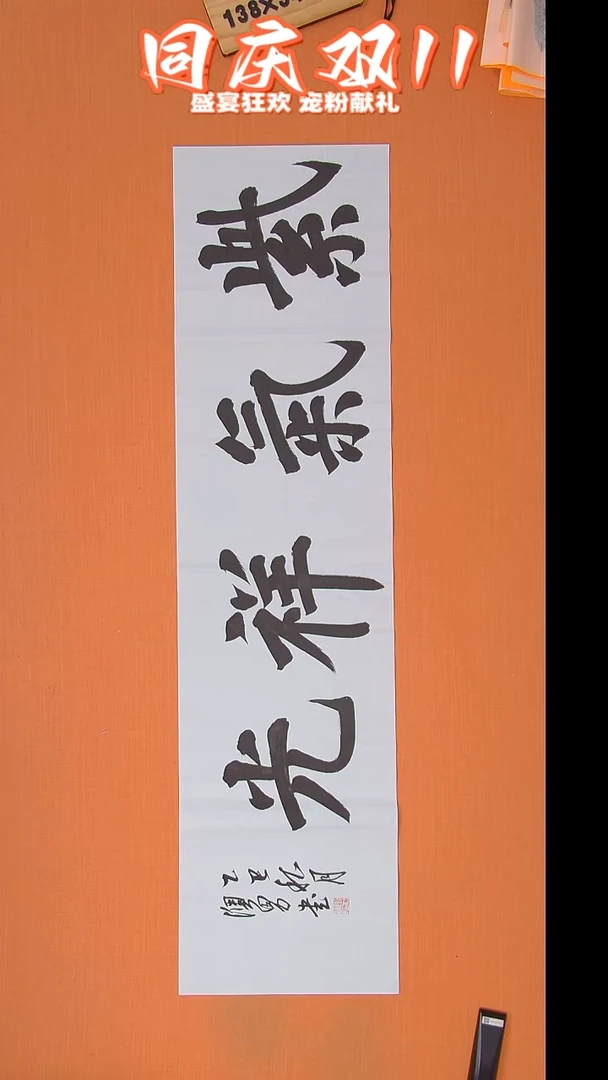 138X3
同庆双11
盛宴狂欢 宠粉献礼
紫氣祥光
乙巳秋月